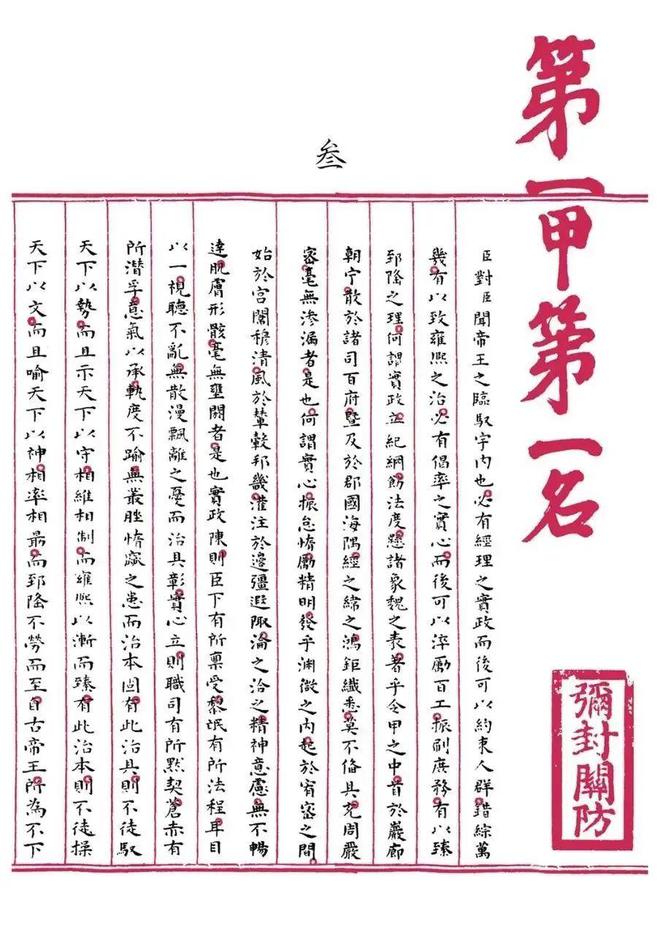 第一甲第一名
彌封關防
叄
臣對臣聞帝王之臨馭宇內也必有經理之實政而後可以約束人群錯綜萬
幾有以致雍熙之治必有倡率之實心而後可以淬勵百工振刷庶務有以臻
郅隆之理何謂實政立紀綱飭法度懸諸象魏之表著乎令甲之中首於巖廊
朝宁散於諸司百府暨及於郡國海隅經之緯之鴻鉅纖悉莫不備具充周嚴
密毫無滲漏者是也何謂實心振怠惰勵精明發乎淵微之內起於宥密之間
始於宮闈穆清風於輦轂邦畿灌注於邊疆遐陬淪之洽之精神意慮無不暢
達肌膚形骸毫無壅閼者是也實政陳則臣下有所稟受黎氓有所法程耳目
以一視聽不亂無散漫飄離之憂而治具彰實心立則職司有所默契蒼赤有
所潛孚意氣以承軌度不踰無叢脞惰窳之患而治本固有此治具則不徒馭
天下以勢而且示天下以守相維相制而雍熙以漸而臻有此治本則不徒操
天下以文而且喻天下以神相率相勗而郅隆不勞而至自古帝王所為不下